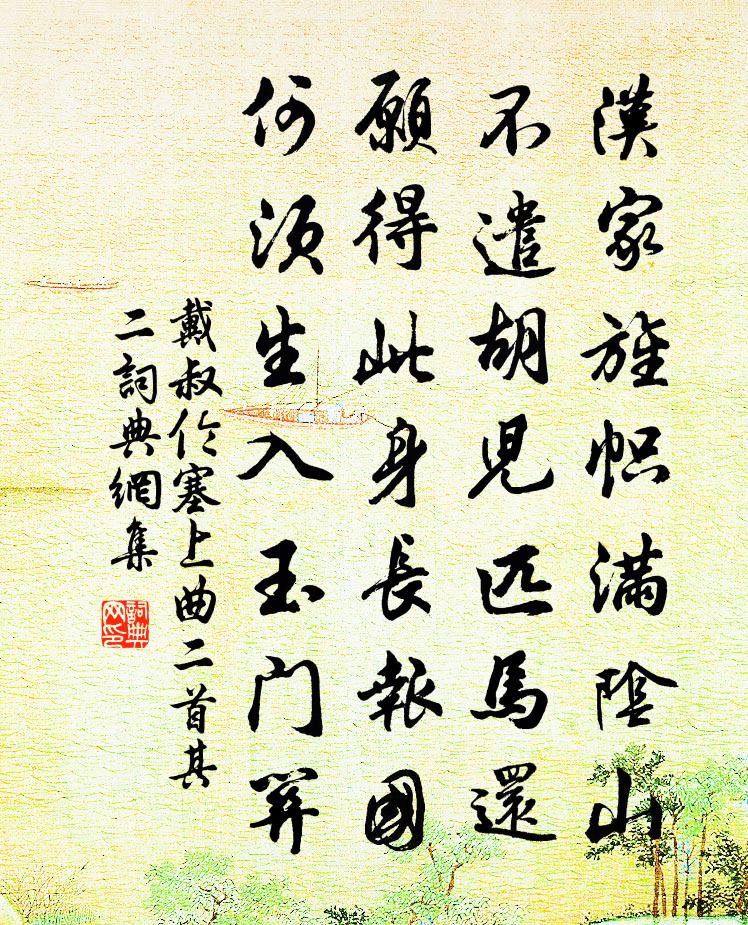 漢家旌幟滿陰山
不遣胡兒匹馬還
願得此身長報國
何須生入玉門關
戴叔倫塞上曲二首其
二詞典網集
詞典網印